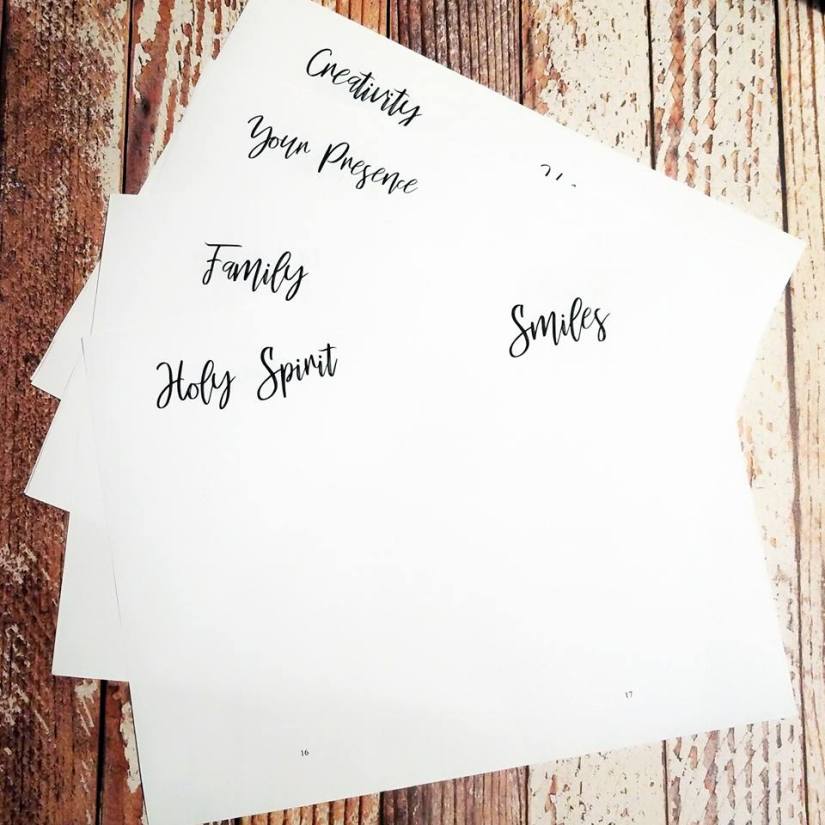 Creativity
Your Presence
Family
Smiles
Holy Spirit
17
16